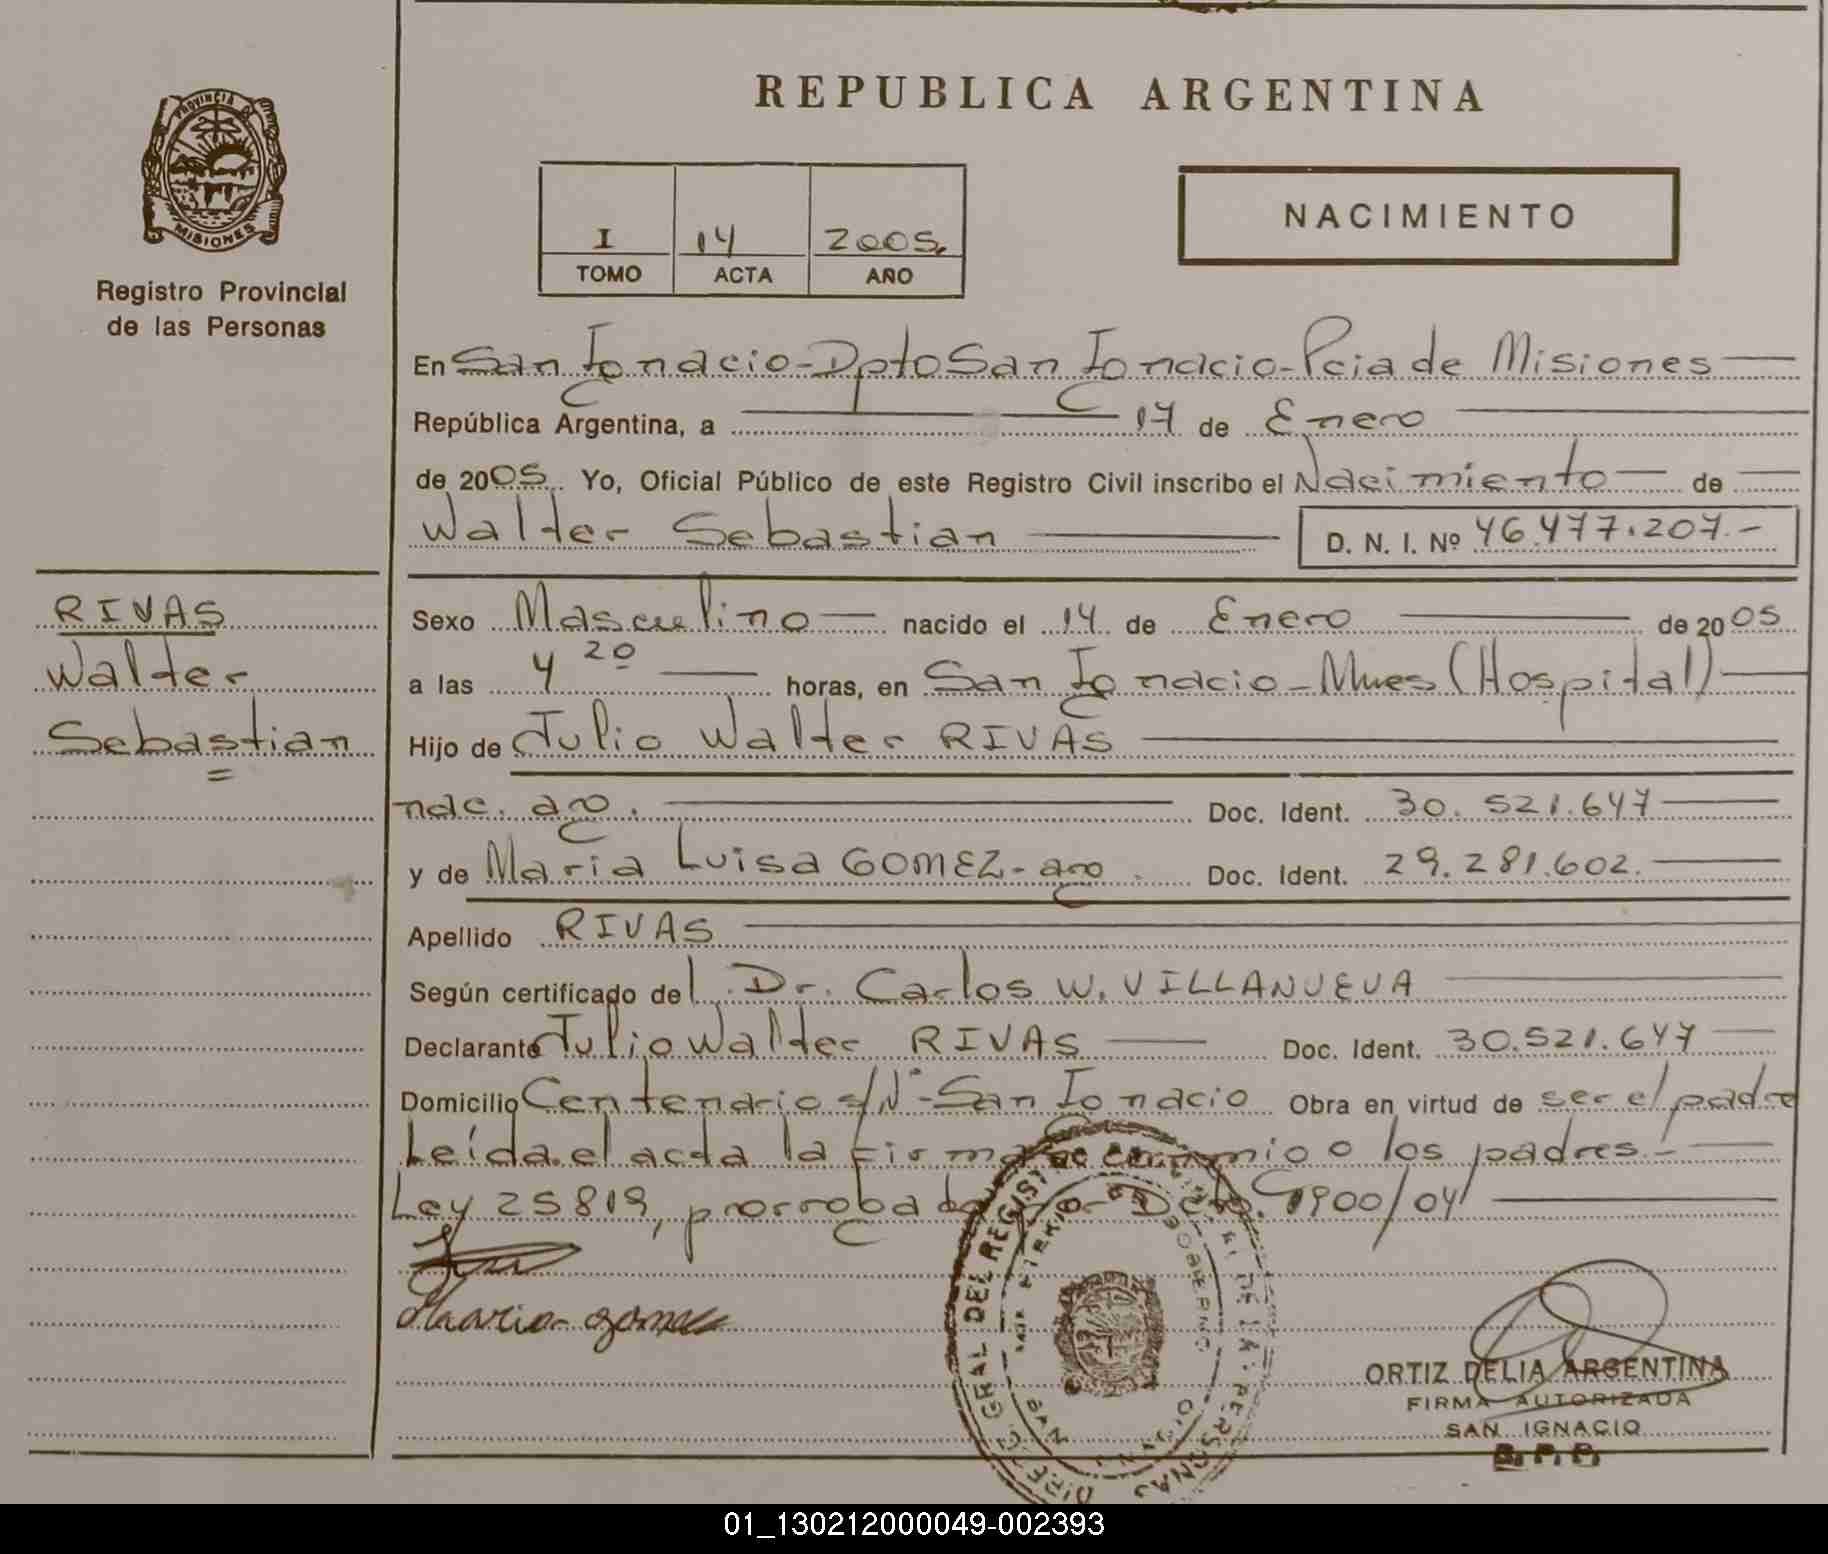 PROVINCIA DE
MISIONES
Registro Provincial
de las Personas
RIVAS
Walter
Sebastian
REPUBLICA ARGENTINA
I 14 2005
TOMO ACTA AÑO
NACIMIENTO
En San Ignacio - Dpto San Ignacio - Pcia de Misiones
República Argentina, a 17 de Enero
de 2005 Yo, Oficial Público de este Registro Civil inscribo el Nacimiento de
Walter Sebastian D. N. I. Nº 46.477.207.-
Sexo Masculino nacido el 14 de Enero de 2005
a las 4 20 horas, en San Ignacio - Mnes (Hospital)
Hijo de Julio Walter RIVAS
nac. arg. Doc. Ident. 30.521.647
y de Maria Luisa GOMEZ - arg. Doc. Ident. 29.281.602.
Apellido RIVAS
Según certificado del Dr. Carlos W. VILLANUEVA
Declarante Julio Walter RIVAS Doc. Ident. 30.521.647
Domicilio Centenario s/Nº - San Ignacio Obra en virtud de ser el padre
Leída el acta la firma conmigo los padres.-
Ley 25819, prorrogada por Dcto. 1900/04
Maria gomez
DIREC. GRAL DEL REGISTRO DE LAS PERSONAS
MINISTERIO DE GOBIERNO
ORTIZ DELIA ARGENTINA
FIRMA AUTORIZADA
SAN IGNACIO
R.P.P.
01_130212000049-002393